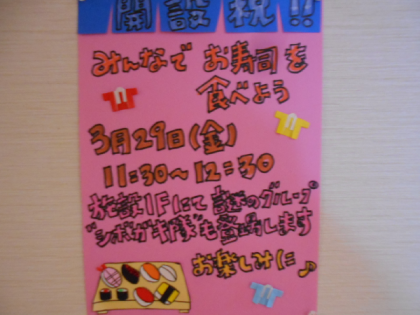 開設祝!!
みんなで お寿司を
食べよう
3月29日(金)
11:30~12:30
施設1Fにて 謎のグループ
も登場します
お楽しみに♪